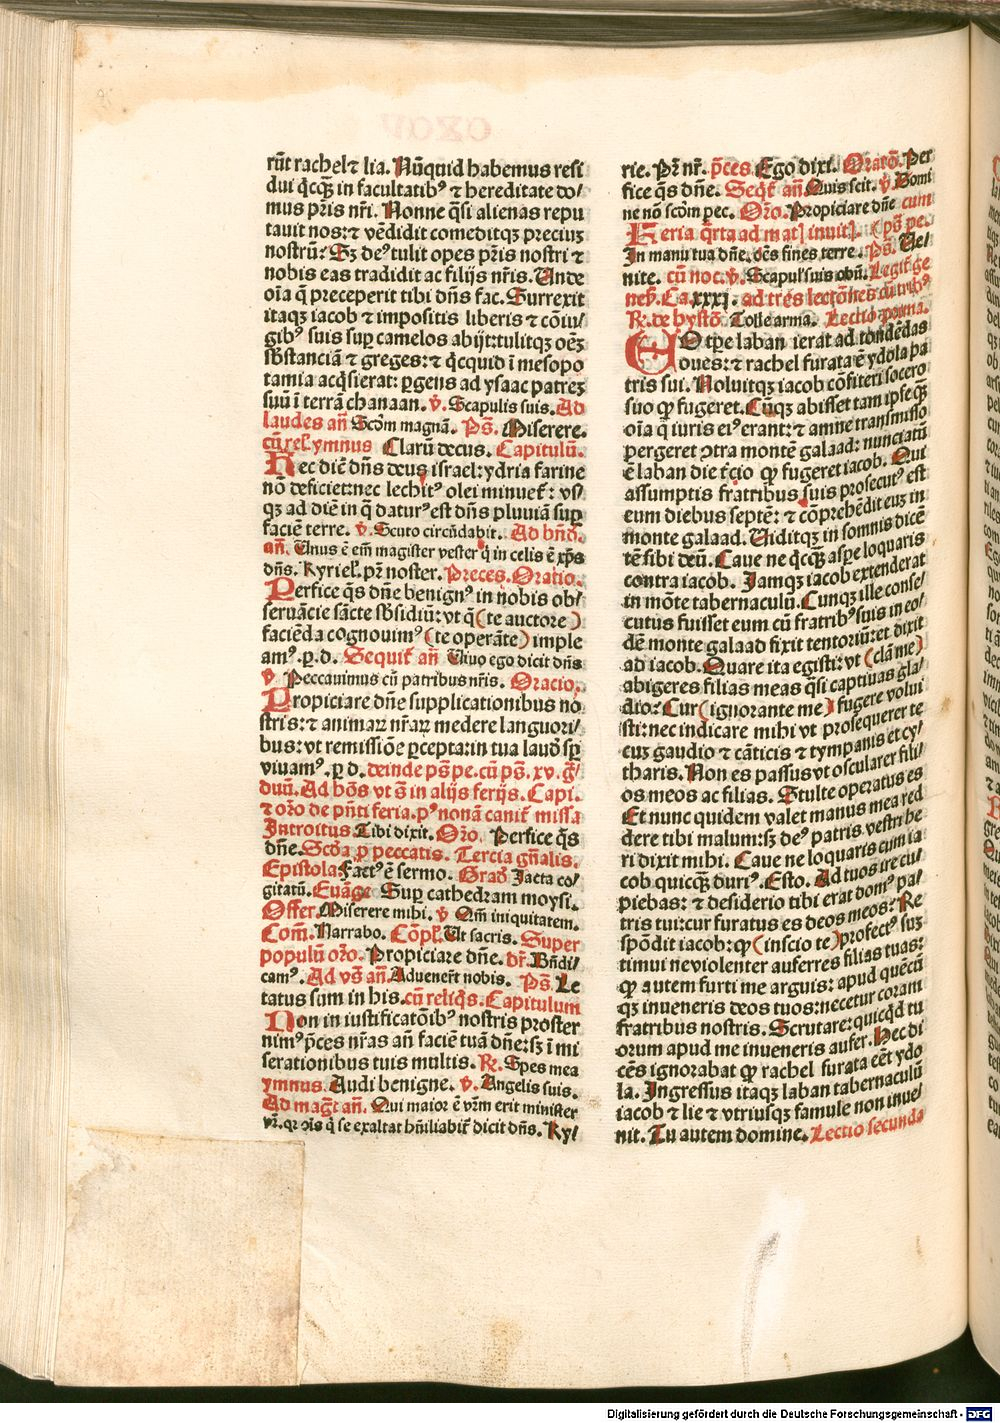 rūt rachel ⁊ lia. Nūquid habemus resi
dui q̄cq̄ȝ in facultatibꝰ ⁊ hereditate do/
mus pr̄is nr̄i. Nonne q̄si alienas repu
tauit nos: ⁊ vēdidit comeditqȝ precium
nostrū? Sȝ deꝰ tulit opes pr̄is nostri ⁊
nobis eas tradidit ac filijs nr̄is. Unde
oīa q̄ preceperit tibi dn̄s fac. Surrexit
itaqȝ iacob ⁊ impositis liberis ⁊ cōiu/
gibꝰ suis suꝑ camelos abijt: tulitqȝ oēȝ
sb̄stanciā ⁊ greges: ⁊ q̄cquid ī mesopo
tamia acq̄sierat: ꝑgens ad ysaac patreȝ
suū ī terrā chanaan. v̄. Scapulis suis. Ad
laudes an̄ Scd̄m magnā. Ps̄. Miserere.
cū rel̄. ymnus Clarū decus. Capitulū.
Hec diē dn̄s deus israel: ydria farine
nō deficiet: nec lechitꝰ olei minuet̄: vs/
qȝ ad diē in q̄ daturꝰ est dn̄s pluuiā suꝑ
faciē terre. v̄. Scuto circūdabit. Ad bn̄d̄.
an̄. Unus ē em̄ magister vester q̄ in celis ē xp̄s
dn̄s. Kyriel̄. pr̄ noster. Preces. Oratio.
Perfice q̄s dn̄e benignꝰ in nobis ob/
seruācie sācte sb̄sidiū: vt q̄ (te auctore)
faciēda cognouimꝰ (te operāte) imple
amꝰ. ꝑ. d. Sequit̄ an̄ Uiuo ego dicit dn̄s
v̄ Peccauimus cū patribus nr̄is. Oracio.
Propiciare dn̄e supplicationibus no
stris: ⁊ animaꝝ nr̄aꝝ medere languori/
bus: vt remissiōe ꝑcepta: in tua laud̄ sꝑ
viuamꝰ. ꝑ d. deinde ps̄ pe. cū ps̄. xv. ḡ/
duū. Ad hōs vt ē in alijs ferijs. Capi.
⁊ or̄o de pn̄ti feria. pꝰ nonā canit̄ missa
Introitus. Tibi dixit. Or̄o. Perfice q̄s
dn̄e. Scd̄a ꝓ peccatis. Tercia gn̄alis.
Epistola: Factꝰ ē sermo. Grad̄ Jacta co/
gitatū. Euāge Suꝑ cathedram moysi.
Offer. Miserere mihi. v̄ Qm̄ iniquitatem.
Com̄. Narrabo. Cōpl̄. Ut sacris. Super
populū or̄o. Propiciare dn̄e. dr̄. Bn̄di/
camꝰ. Ad vs̄ an̄. Aduener̄t nobis. Ps̄. Le
tatus sum in his. cū reliq̄s. Capitulum
Non in iustificatōibꝰ nostris proster
nimꝰ p̄ces nr̄as an̄ faciē tuā dn̄e: sȝ ī mi
serationibus tuis multis. R̄. Spes mea
ymnus. Audi benigne. v̄. Angelis suis.
Ad maḡt an̄. Qui maior ē vr̄m erit minister
vr̄. qꝛ oīs q̄ se exaltat hn̄iliabit̄ dicit dn̄s. Ky/
rie. Pr̄ nr̄. p̄ces. Ego dixi. Orato. Per
fice q̄s dn̄e. Seq̄t̄ an̄. Quis scit. v̄. Domi
ne nō scd̄m pec. Or̄o. Propiciare dn̄e cum
Feria q̄rta ad mat] inuit]. (ps̄ pe.
In manu tua dn̄e. oēs fines terre. Ps̄. Ue/
nite. cū noc. v̄. Scapul̄ suis obū. Legit̄ ge
nes̄. Ca. xxxj. ad tres lectiōnes cū tribꝰ
R̄. de hystō. Tolle arma. Lectio prima.
EO tꝑe laban ierat ad tondēdas
oues: ⁊ rachel furata ē ydola pa
tris sui. Noluitqȝ iacob cōfiteri socero
suo ꝙ fugeret. Cūqȝ abisset tam ipse q̄ȝ
oīa q̄ iuris eiꝰ erant: ⁊ amne transmisso
pergeret ꝯtra montē galaad: nunciatū
ē laban die t̄cio ꝙ fugeret iacob. Qui
assumptis fratribus suis prosecutꝰ est
eum diebus septē: ⁊ cōprehēdit euȝ in
monte galaad. Uiditqȝ in somnis dicē
tē sibi deū. Caue ne q̄cq̄ȝ asꝑe loquaris
contra iacob. Jamqȝ iacob extenderat
in mōte tabernaculū. Cunqȝ ille conse/
cutus fuisset eum cū fratribꝰ suis in eo/
dē monte galaad fixit tentoriū: et dixit
ad iacob. Quare ita egisti: vt (clā me)
abigeres filias meas q̄si captiuas gla/
dio? Cur (ignorante me) fugere volui
sti: nec indicare mihi vt prosequerer te
cuȝ gaudio ⁊ cāticis ⁊ tympanis et cy/
tharis. Non es passus vt oscularer fili/
os meos ac filias. Stulte operatus es
Et nunc quidem valet manus mea red
dere tibi malum: sȝ deꝰ patris vestri he
ri dixit mihi. Caue ne loquaris cum ia
cob quicq̄ȝ duriꝰ. Esto. Ad tuos ire cu/
piebas: ⁊ desiderio tibi erat domꝰ pa/
tris tui: cur furatus es deos meos? Re
spōdit iacob: ꝙ (inscio te) profectꝰ suȝ
timui ne violenter auferres filias tuas:
ꝙ autem furti me arguis: apud quēcū
qȝ inueneris deos tuos: necetur coram
fratribus nostris. Scrutare: quicq̄d tu
orum apud me inueneris aufer. Hec di
cēs ignorabat ꝙ rachel furata eēt ydo
la. Ingressus itaqȝ laban tabernaculū
iacob ⁊ lie ⁊ vtriusqȝ famule non inue/
nit. Tu autem domine. Lectio secunda
Digitalisierung gefördert durch die Deutsche Forschungsgemeinschaft - DFG